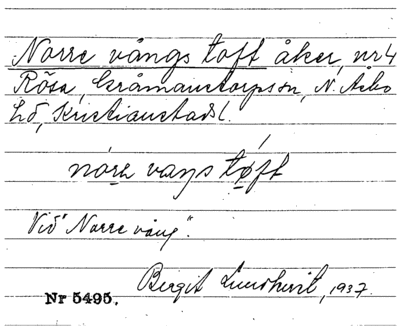 Norre vångs toft åker, nr 4
Rösa, Gråmanstorpssn, N. Åsbo
hd, Kristianstads l.
nóra vaŋs tǿft
Vid "Norre vång".
Bergit Lundkvist, 1937.
Nr 5495.